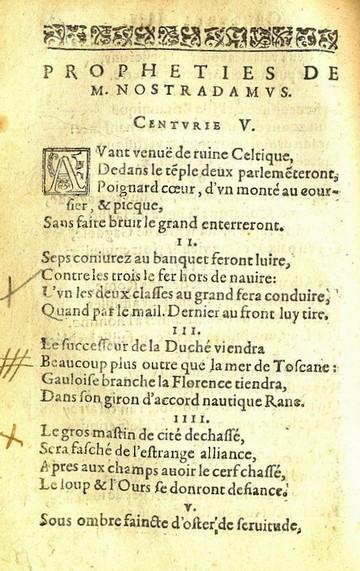 PROPHETIES DE
M. NOSTRADAMVS.
CENTVRIE V.
AVant venuë de ruine Celtique,
Dedans le tẽple deux parlemẽteront,
Poignard cœur, d'vn monté au cour-
sier, & picque,
Sans faire bruit le grand enterreront.
II.
Seps coniurez au banquet feront luire,
Contre les trois le fer hors de nauire:
L'vn les deux classes au grand fera conduire,
Quand par le mail. Dernier au front luy tire,
III.
Le successeur de la Duché viendra
Beaucoup plus outre que la mer de Toscane:
Gauloise branche la Florence tiendra,
Dans son giron d'accord nautique Rane.
IIII.
Le gros mastin de cité dechassé,
Sera fasché de l'estrange alliance,
Apres aux champs auoir le cerf chassé,
Le loup & l'Ours se donront defiance.
V.
Sous ombre faincte d'oster de seruitude,